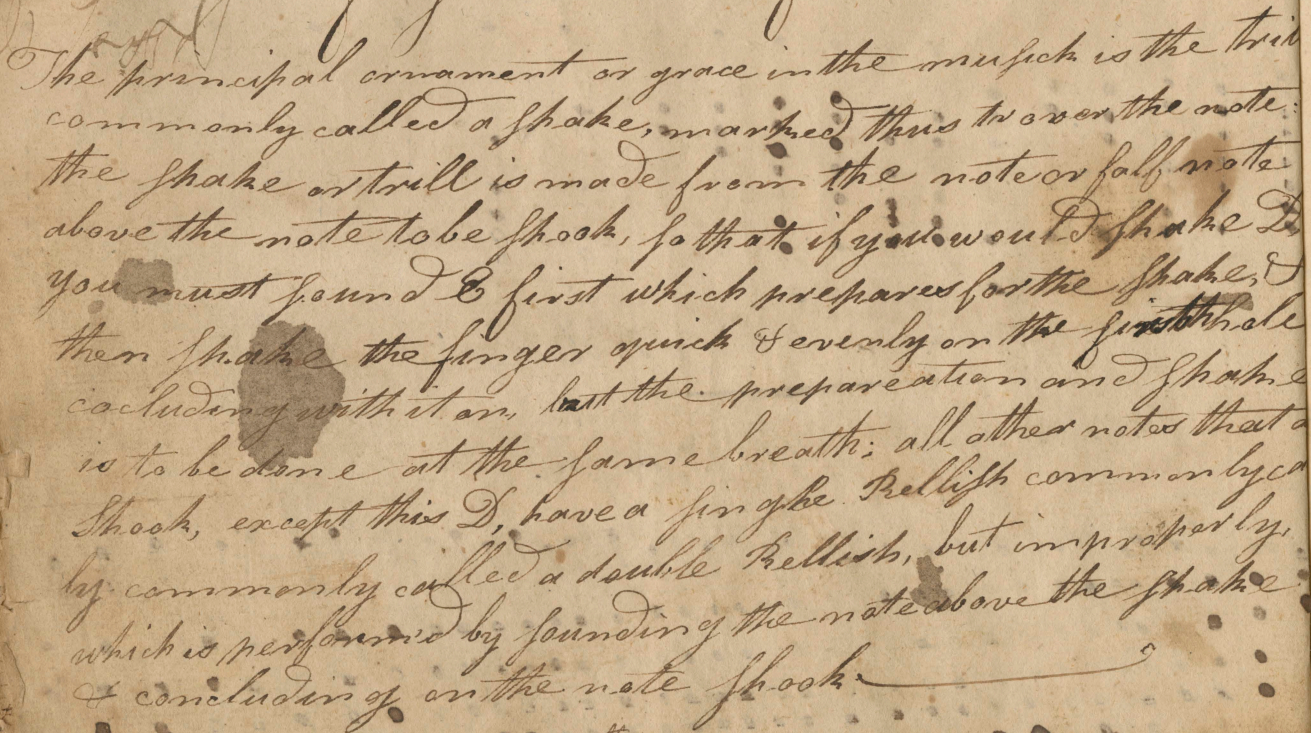 The principal ornament or grace in the musick is the tril
commonly called a shake, marked thus tr over the note:
the shake or trill is made from the note or half note
above the note to be shook, so that if you would shake D,
you must sound E first which prepares for the shake, &
then shake the finger quick & evenly on the first hole
cocluding with it on, but the prepareation and shake
is to be done at the same breath; all other notes that a
Shook, except this D, have a single Rellish commonly ca
ly commonly called a double Rellish, but improperly,
which is perform'd by sounding the note above the shake
& concluding on the note shook.